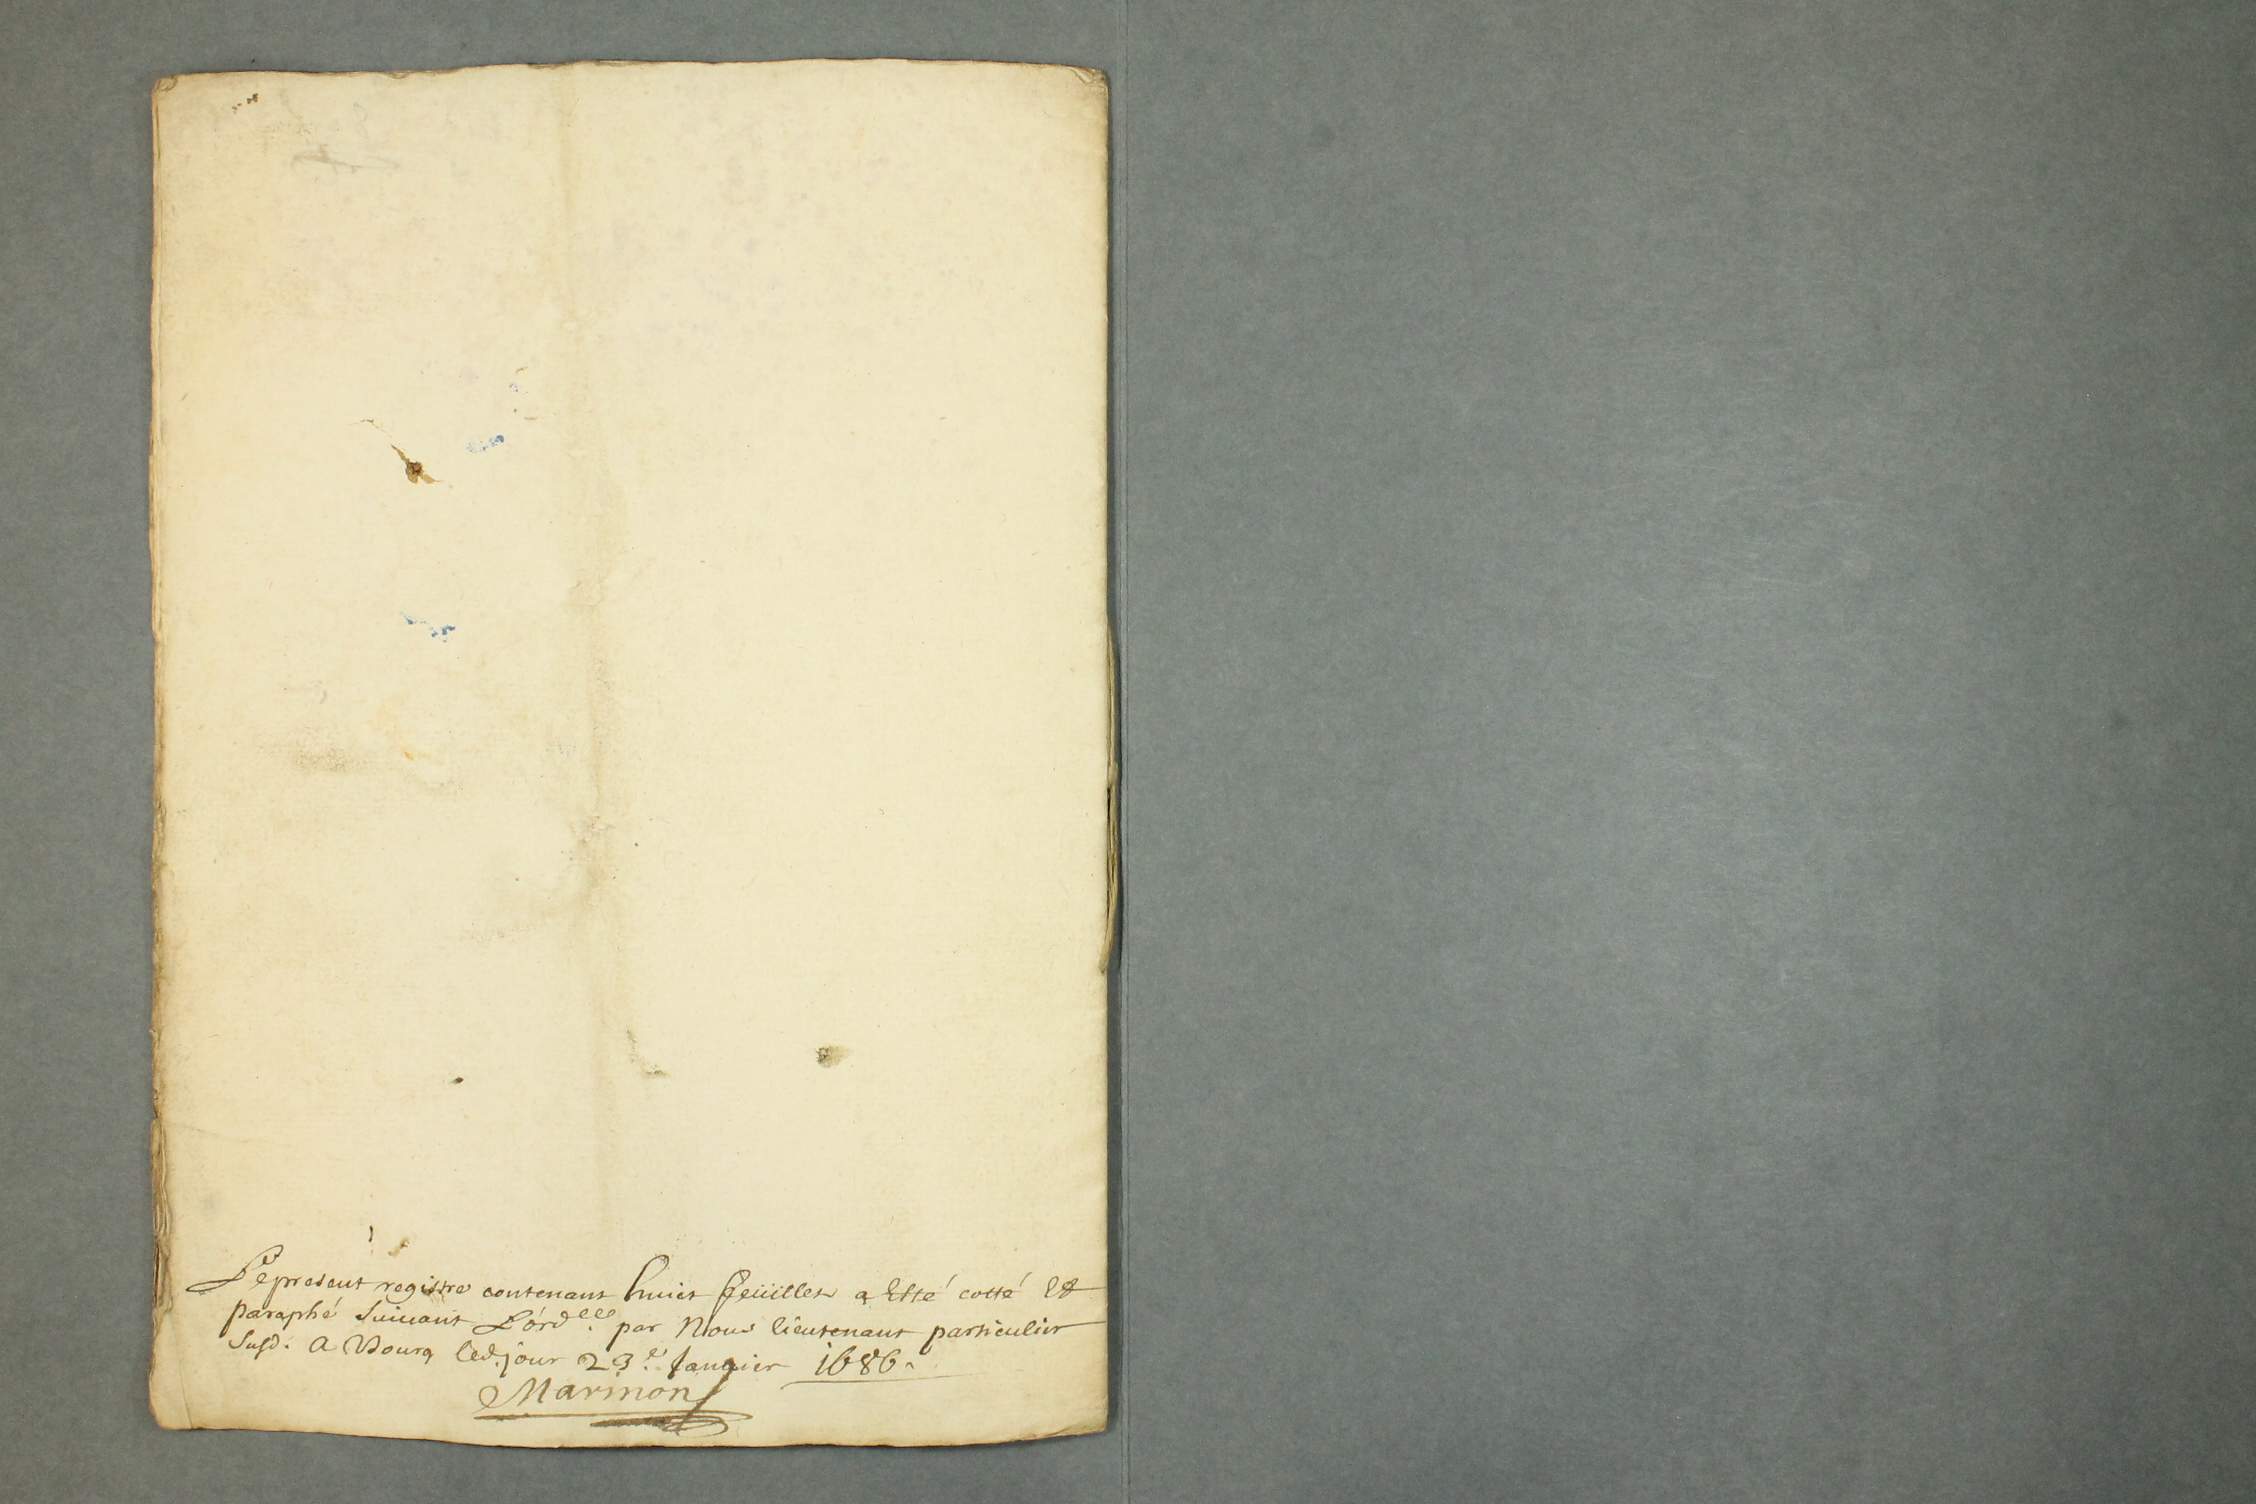 Le present registre contenant huict feüilles a Esté cotté Et
paraphé suiuant L'ord.lle par Nous lieutenant particulier
susd. A Bourg led. jour 23.e Januier 1686.
Marinon